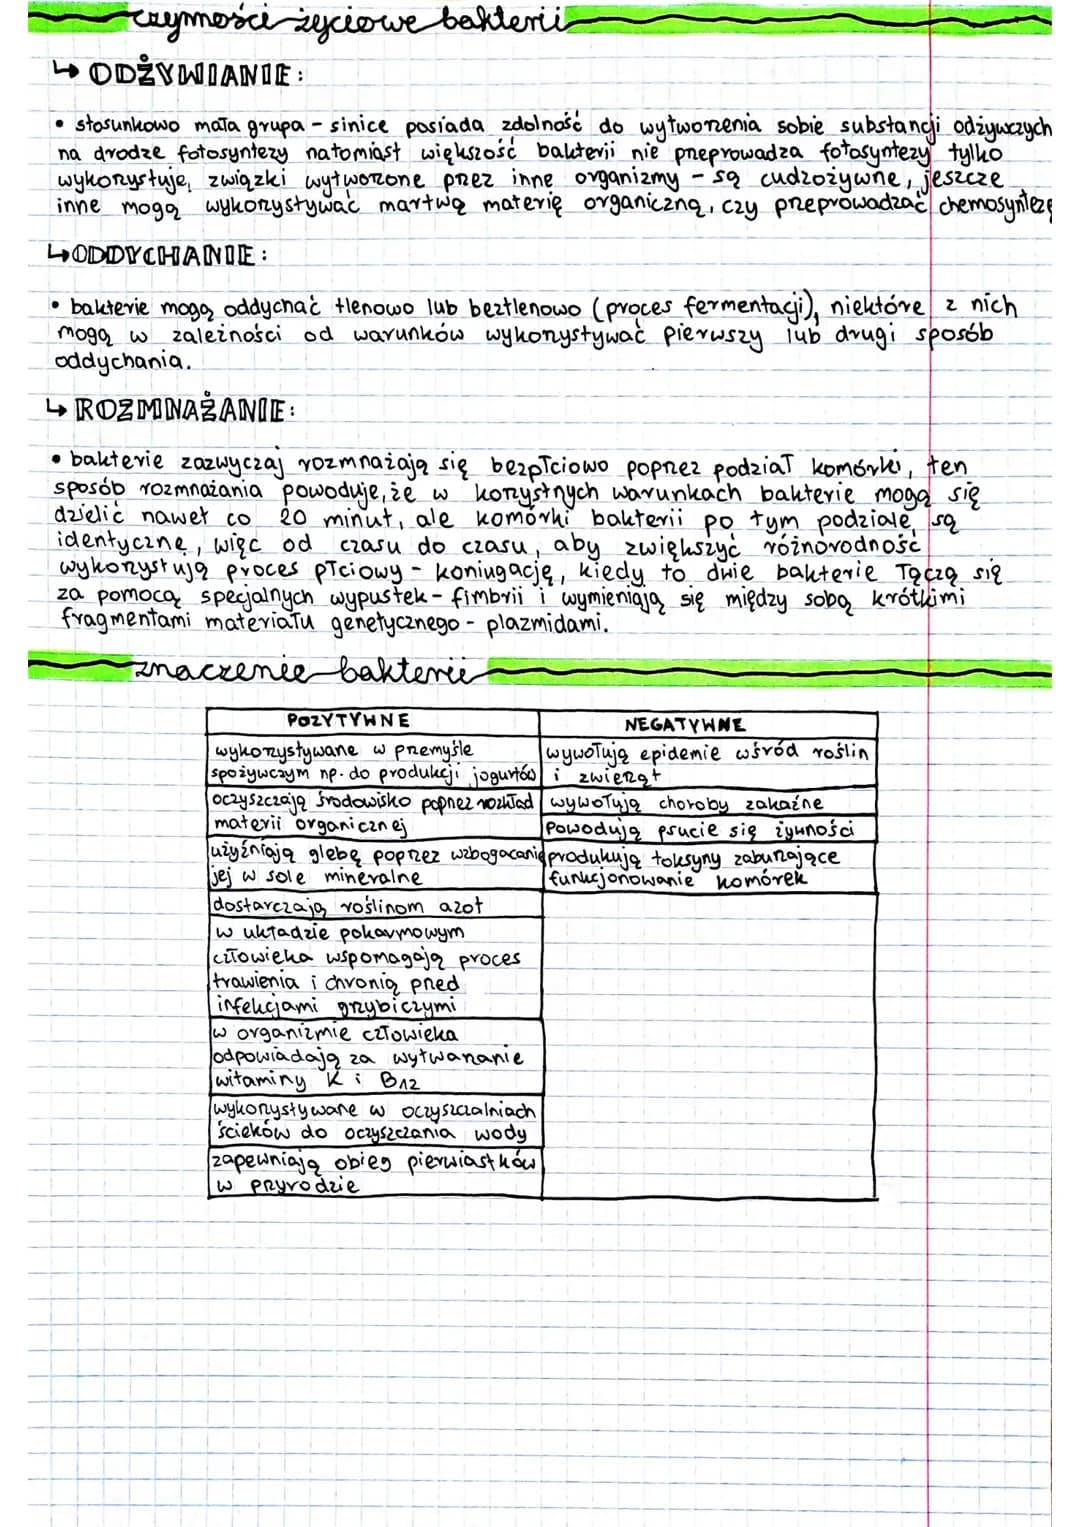 czynności życiowe bakterii
↳ ODŻYWIANIE:
• stosunkowo mała grupa - sinice posiada zdolność do wytworzenia sobie substancji odżywczych
na drodze fotosyntezy natomiast większość bakterii nie przeprowadza fotosyntezy tylko
wykorzystuje, związki wytworzone przez inne organizmy - są cudzożywne, jeszcze
inne mogą wykorzystywać martwą materię organiczną, czy przeprowadzać chemosyntezę
↳ ODDYCHANIE:
• bakterie mogą oddychać tlenowo lub beztlenowo (proces fermentacji), niektóre z nich
mogą w zależności od warunków wykorzystywać pierwszy lub drugi sposób
oddychania.
↳ ROZMNAŻANIE:
• bakterie zazwyczaj rozmnażają się bezpłciowo poprzez podział komórki, ten
sposób rozmnażania powoduje, że w korzystnych warunkach bakterie mogą się
dzielić nawet co 20 minut, ale komórki bakterii po tym podziale, są
identyczne, więc od czasu do czasu, aby zwiększyć różnorodność
wykorzystują proces płciowy - koniugację, kiedy to dwie bakterie łączą się
za pomocą specjalnych wypustek - fimbrii i wymieniają się między sobą krótkimi
fragmentami materiału genetycznego - plazmidami.
znaczenie bakterii
POZYTYWNE
NEGATYWNE
wykorzystywane w przemyśle
spożywczym np. do produkcji jogurtów
wywołują epidemie wśród roślin
i zwierząt
oczyszczają środowisko poprzez rozkład
materii organicznej
wywołują choroby zakaźne
powodują psucie się żywności
użyźniają glebę poprzez wzbogacanie
jej w sole mineralne
produkują toksyny zaburzające
funkcjonowanie komórek
dostarczają roślinom azot
w układzie pokarmowym
człowieka wspomagają proces
trawienia i chronią przed
infekcjami grzybiczymi
w organizmie człowieka
odpowiadają za wytwarzanie
witaminy K i B12
wykorzystywane w oczyszczalniach
ścieków do oczyszczania wody
zapewniają obieg pierwiastków
w przyrodzie